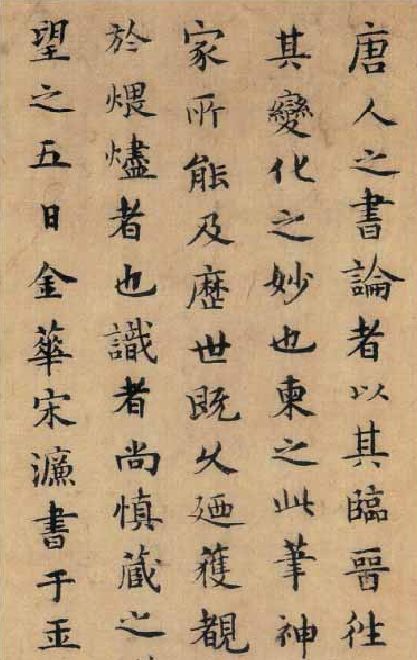 唐人之書論者以其臨晉往
其變化之妙也東之此筆神
家所能及歷世既久廼獲覩
於煨燼者也識者尚慎藏之
望之五日金華宋濂書于玉